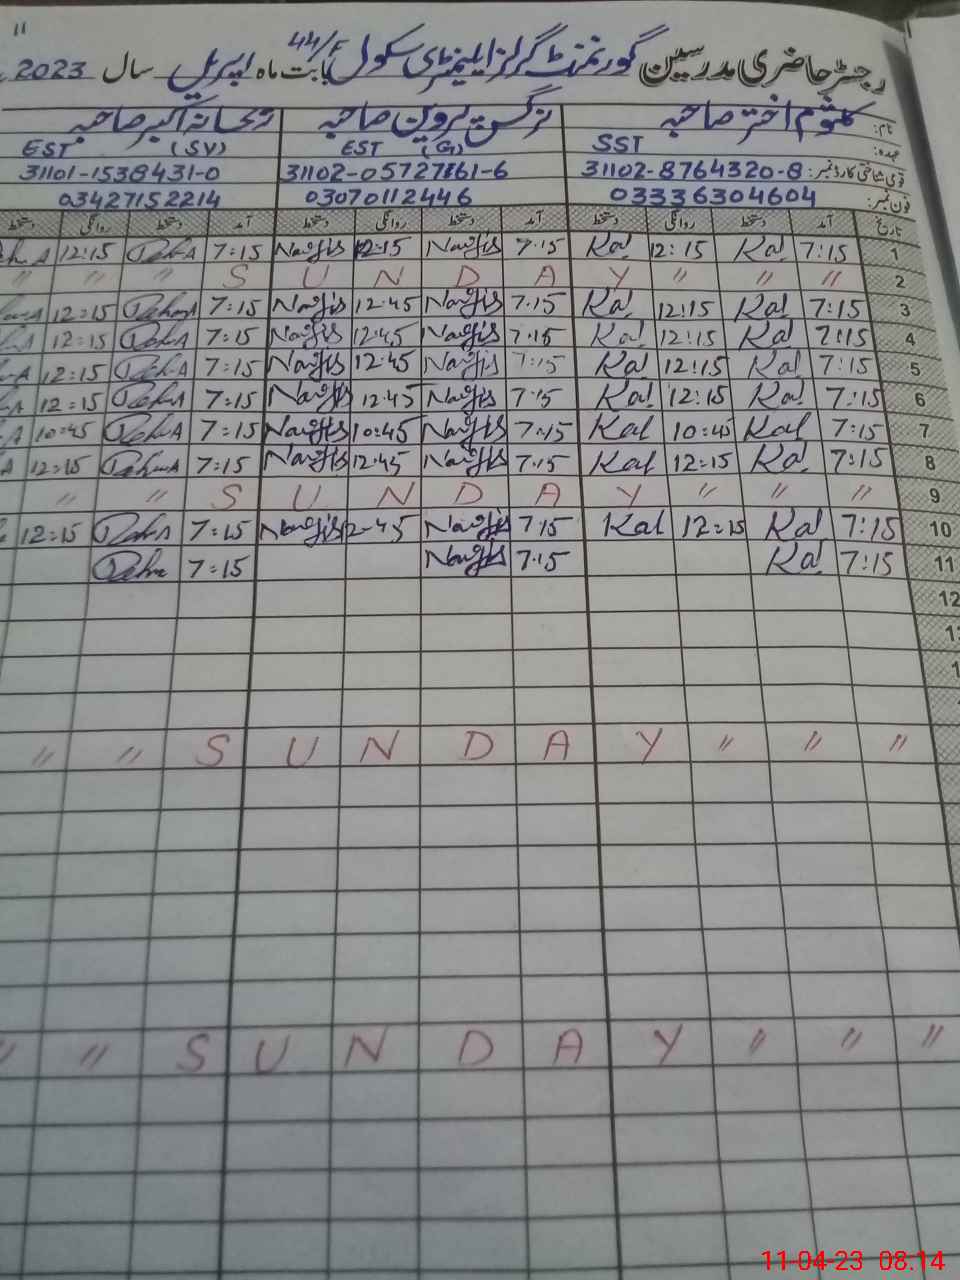 11
رجسٹر حاضری مدرسین گورنمنٹ گرلز ایلیمنٹری سکول 44/F بابت ماہ اپریل سال 2023
نام: کلثوم اختر صاحبہ نرگس پروین صاحبہ ریحانہ اکبر صاحبہ
عہدہ: SST EST (G) EST (SV)
قومی شناختی کارڈ نمبر: 31102-8764320-8 31102-05727861-6 31101-1538431-0
فون نمبر: 03336304604 03070112446 03427152214
تاریخ آمد دستخط روانگی دستخط آمد دستخط روانگی دستخط آمد دستخط روانگی دستخط
1 7:15 Kal 12:15 Kal 7:15 Nargis 12:15 Nargis 7:15 12:15
2 〃 〃 〃 S U N D A Y 〃 〃 〃
3 7:15 Kal 12:15 Kal 7:15 Nargis 12:45 Nargis 7:15 12:15
4 7:15 Kal 12:15 Kal 7:15 Nargis 12:45 Nargis 7:15 12:15
5 7:15 Kal 12:15 Kal 7:15 Nargis 12:45 Nargis 7:15 12:15
6 7:15 Kal 12:15 Kal 7:15 Nargis 12:45 Nargis 7:15 12:15
7 7:15 Kal 10:45 Kal 7:15 Nargis 10:45 Nargis 7:15 10:45
8 7:15 Kal 12:15 Kal 7:15 Nargis 12:45 Nargis 7:15 12:15
9 〃 〃 〃 S U N D A Y 〃 〃
10 7:15 Kal 12:15 Kal 7:15 Nargis 2-45 Nargis 7:15 12:15
11 7:15 Kal 7:15 Nargis 7:15
12
〃 〃 S U N D A Y 〃 〃 〃
〃 〃 S U N D A Y 〃 〃 〃
11-04-23 08:14